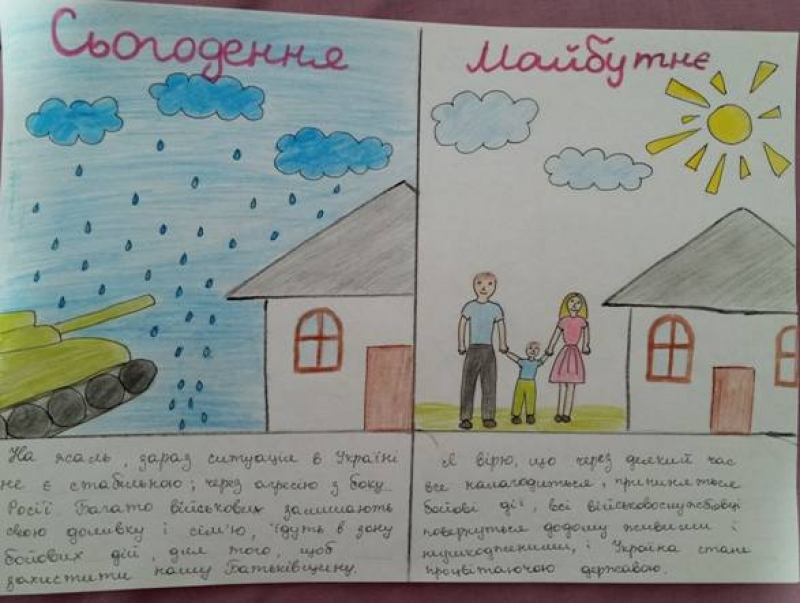 Сьогодення
Майбутнє
На жаль, зараз ситуація в Україні
не є стабільною, через агресію з боку
Росії. Багато військових залишають
свою домівку і сім'ю, їдуть в зону
бойових дій, для того, щоб
захистити нашу Батьківщину.
Я вірю, що через деякий час
все налагодиться, припиняться
бойові дії, всі військовослужбовці
повернуться додому живими і
неушкодженими, і Україна стане
процвітаючою державою.